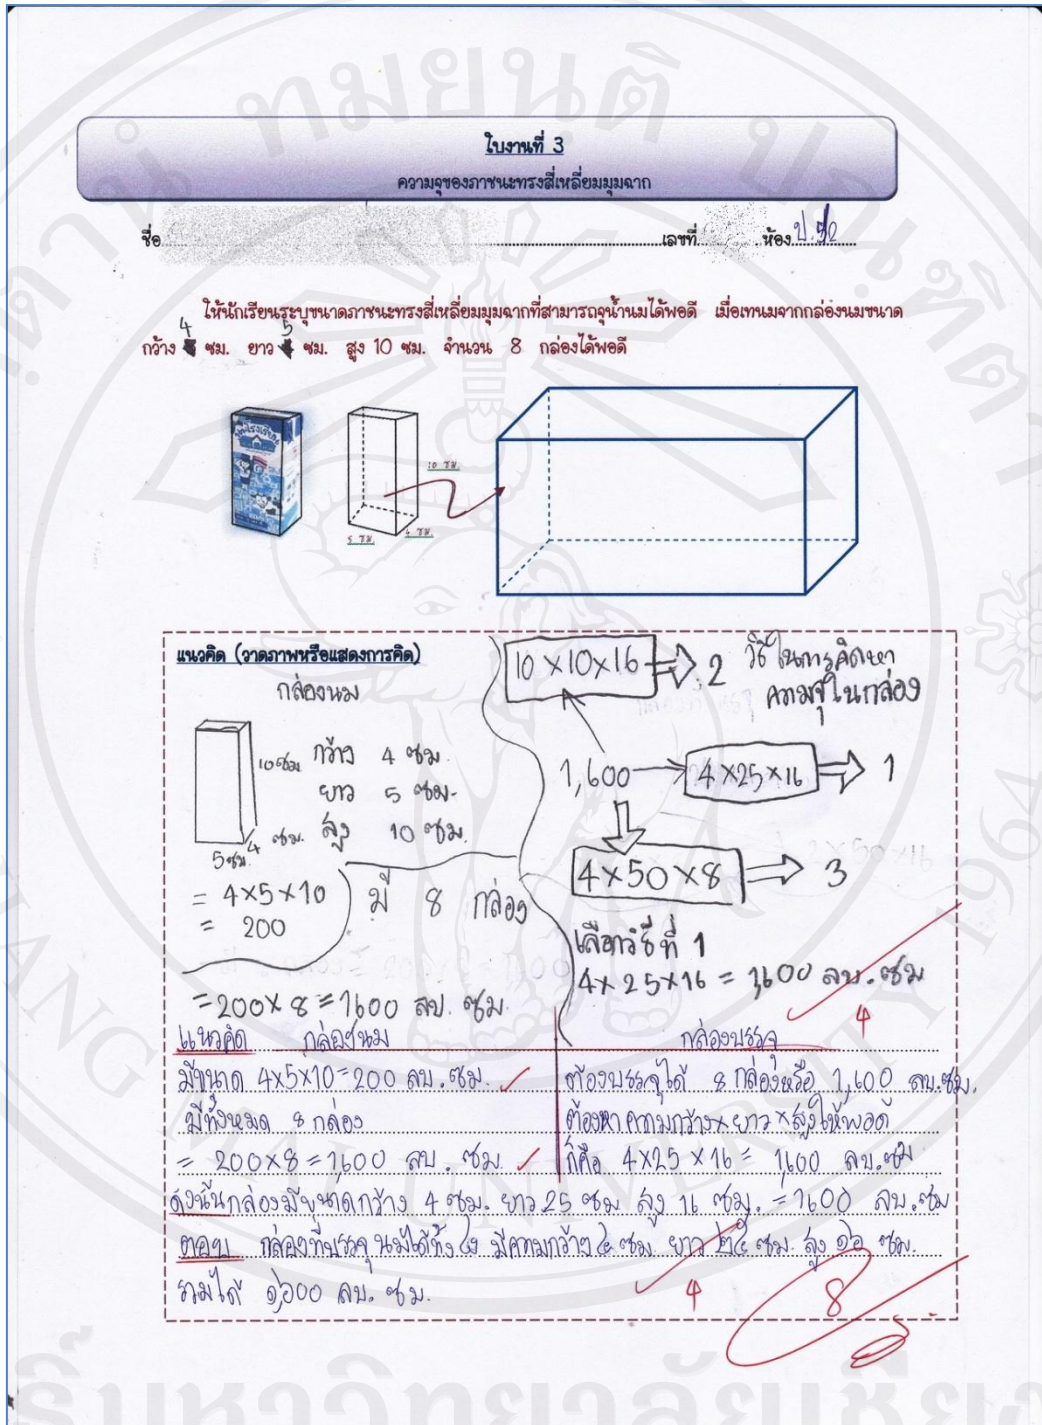 ใบงานที่ 3
ความจุของภาชนะทรงสี่เหลี่ยมมุมฉาก
ชื่อ
เลขที่
ห้อง ป.5/2
ให้นักเรียนระบุขนาดภาชนะทรงสี่เหลี่ยมมุมฉากที่สามารถจุน้ำนมได้พอดี เมื่อเทนมจากกล่องนมขนาด
กว้าง 4 ซม. ยาว 5 ซม. สูง 10 ซม. จำนวน 8 กล่องได้พอดี
10 ซม.
5 ซม.
4 ซม.
แนวคิด (วาดภาพหรือแสดงการคิด)
กล่องนม
10 ซม.
5 ซม.
4 ซม.
กว้าง 4 ซม.
ยาว 5 ซม.
สูง 10 ซม.
= 4×5×10
= 200
มี 8 กล่อง
= 200×8 = 1600 ลบ. ซม.
10×10×16
2
วิธีในการคิดหา
ความจุในกล่อง
1,600
4×25×16
1
4×50×8
3
เลือกวิธีที่ 1
4×25×16 = 1,600 ลบ.ซม
4
แนวคิด กล่องนม
มีขนาด 4×5×10=200 ลบ.ซม.
มีทั้งหมด 8 กล่อง
= 200×8 = 1,600 ลบ. ซม.
กล่องบรรจุ
ต้องบรรจุได้ 8 กล่องหรือ 1,600 ลบ.ซม.
ต้องหาความกว้าง×ยาว×สูงให้พอดี
ก็คือ 4×25×16 = 1,600 ลบ.ซม
ดังนั้นกล่องมีขนาดกว้าง 4 ซม. ยาว 25 ซม สูง 16 ซม. = 1600 ลบ.ซม
ตอบ กล่องที่บรรจุนมได้ทั้ง มีความกว้าง ๔ ซม. ยาว ๒๕ ซม. สูง ๑๖ ซม.
รวมได้ ๑,๖๐๐ ลบ. ซม.
4
8